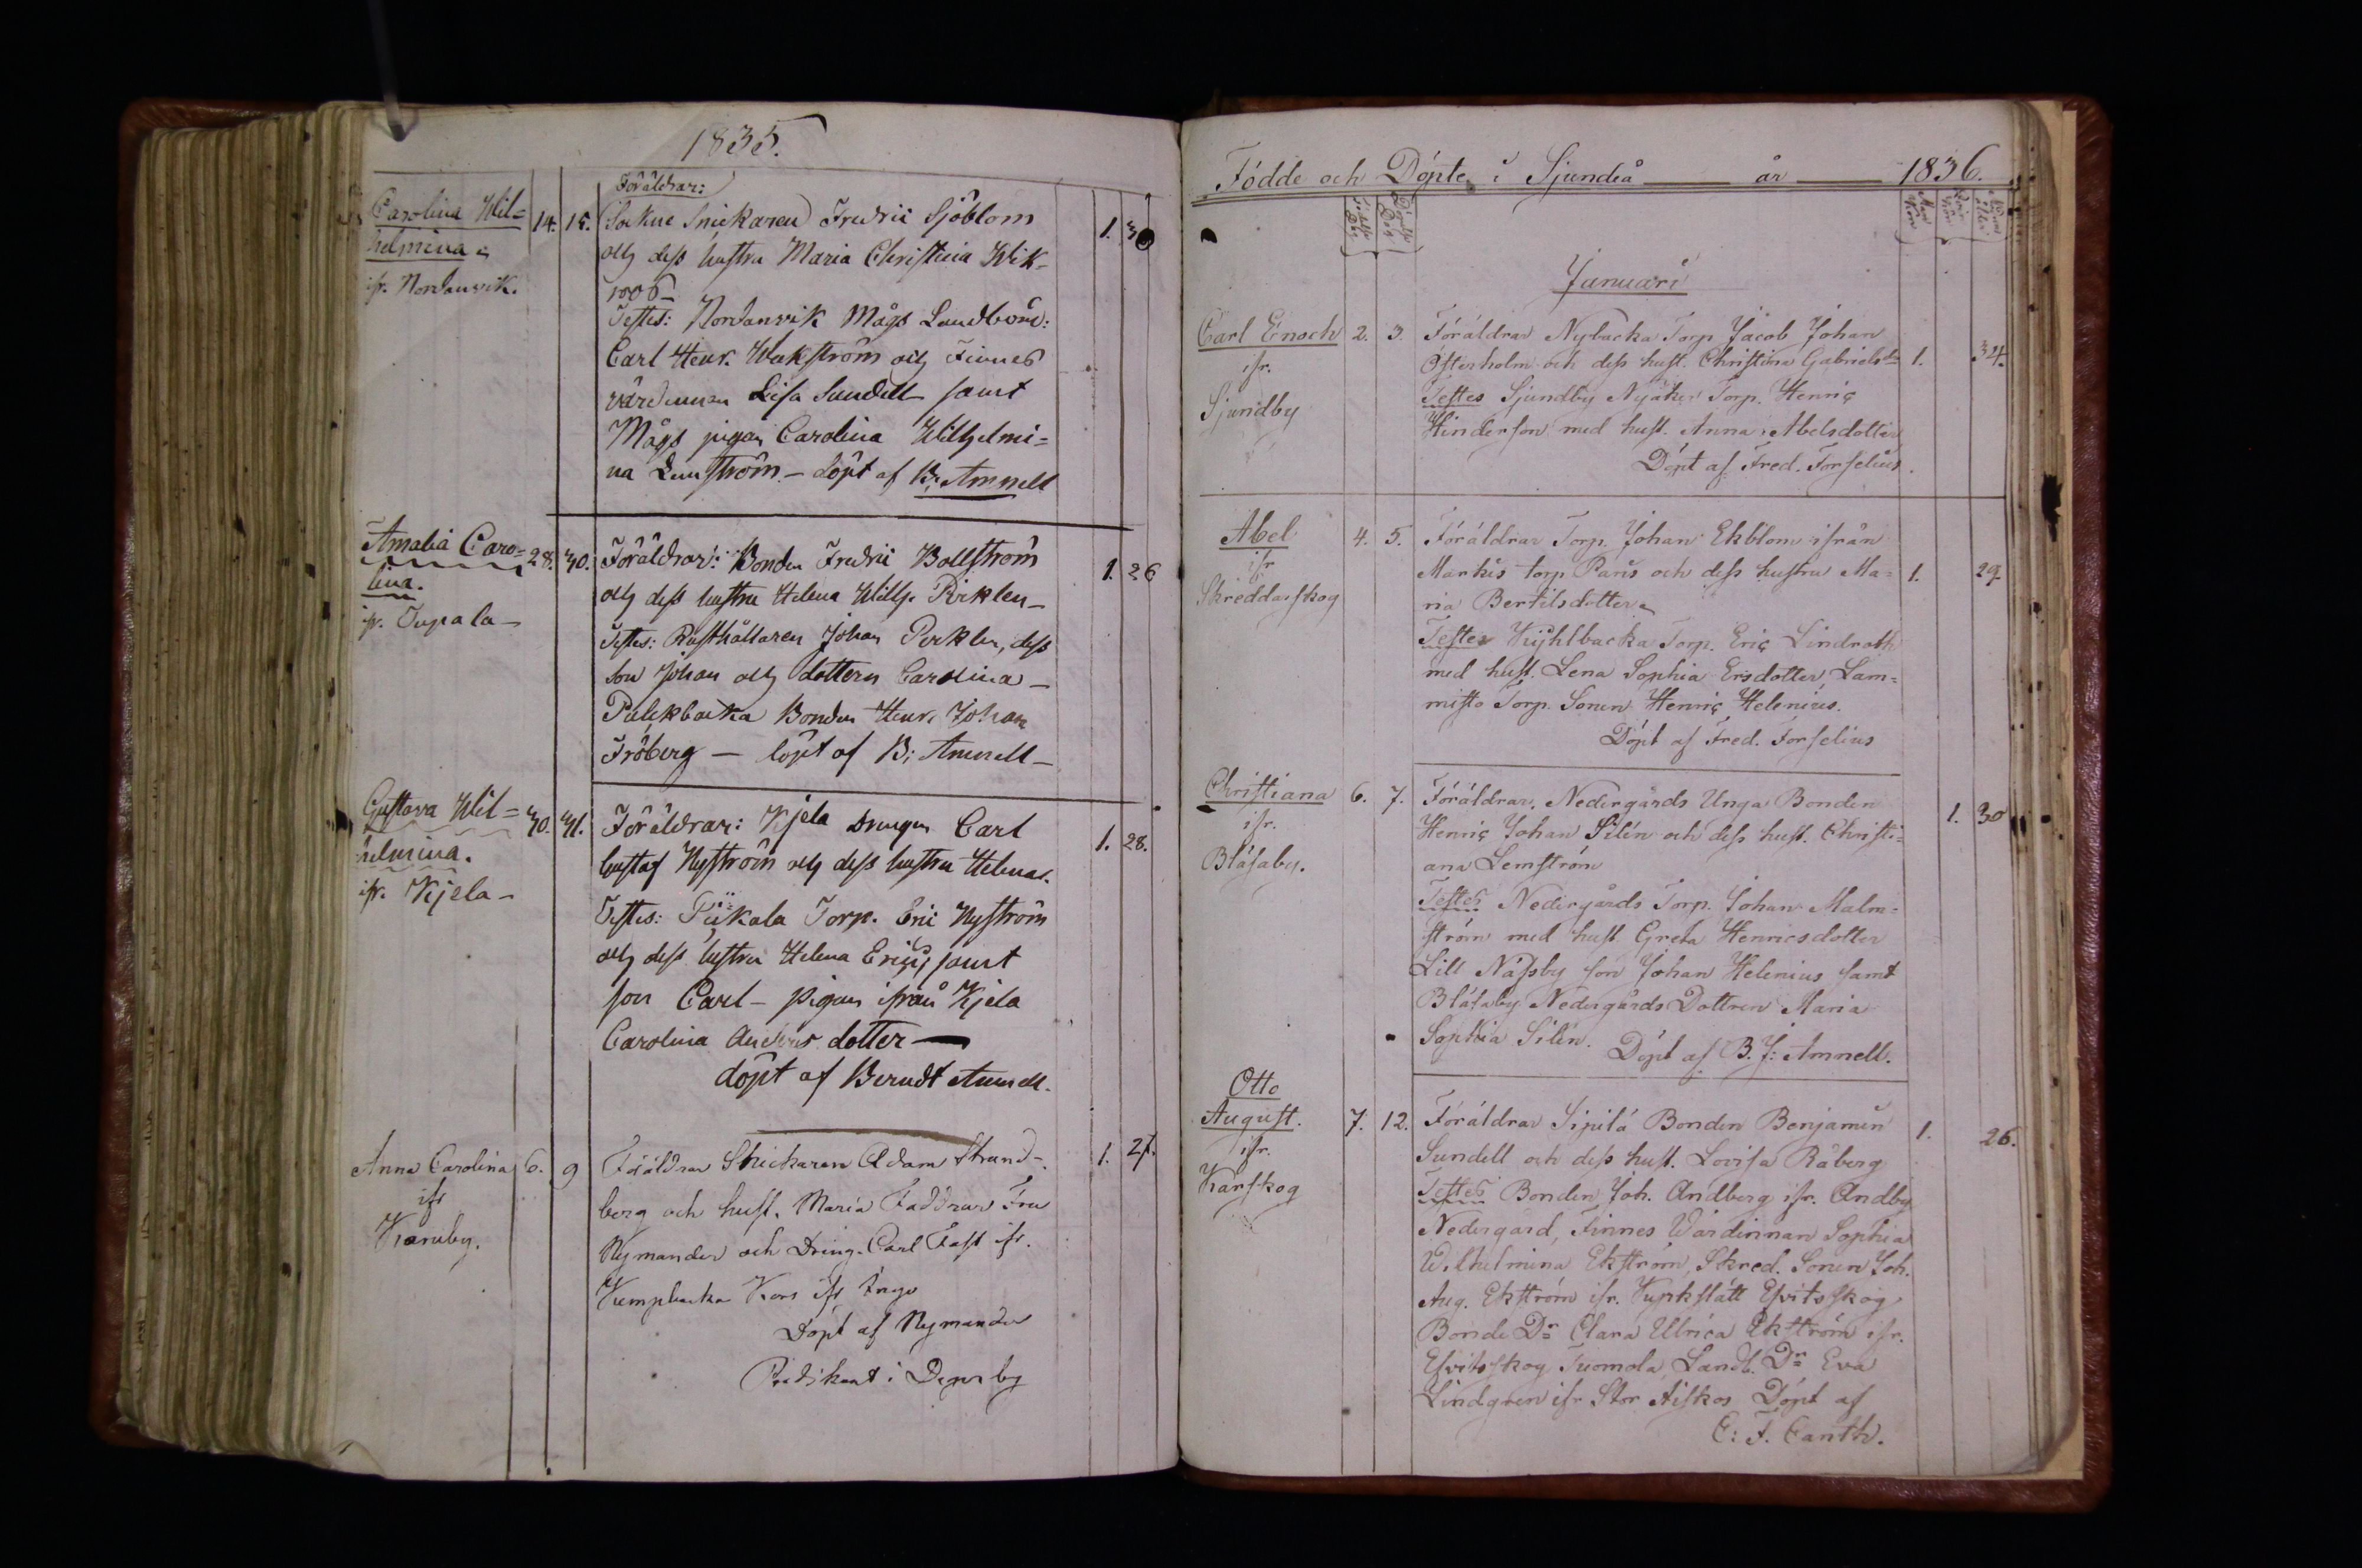 1835.
Föräldrar:
Carolina Wil= 14. 15. Sockne Snickaren Fredric Sjöblom 1. 30
helmina och dess hustru Maria Christina Wik-
ifr. Nordanvik. roos
Testes: Nordanvik Mågs Landbond:
Carl Henr. Wekström och Finnes
värdinnan Lisa Sundell samt
Mågs pigan Carolina Wilhelmi=
na Lemström - döpt af B: Amnell
Amalia Caro= 28. 30. Föräldrar: Bonden Fredric Bollström 1. 26
lina. och dess hustru Helena Wilh. Pirklen
ifr. Tupala Testes: Rusthållaren Johan Pirklen, dess
son Johan och dottern Carolina
Palekbacka Bonden Henr. Johan
Fröberg — döpt af B: Amnell
Gustava Wil= 30. 31. Föräldrar: Kjela Drengen Carl 1. 28.
helmina. Gustaf Nyström och dess hustru Helena.
ifr. Kjela Testes: Piikala Torp. Eric Nyström
och dess hustru Helena Erics, samt
son Carl - pigan ifrån Kjela
Carolina Anders dotter
döpt af Berndt Amnell.
Anna Carolina 6. 9 Föräldrar Snickaren Adam Strand- 1. 27.
ifr berg och hust. Maria Faddrar Fru
Karuby. Nymander och Dreng. Carl Fast ifr.
Kempbacka Kors ifr Ingo
Döpt af Nymander
Predikant i Degerby
Födde och Döpte i Sjundeå år 1836.
Födelse Dag Döpelse Dag Man Kön Qvin Kön
Januari
Carl Enoch 2. 3. Föräldrar Nybacka Torp Jacob Johan
ifr. Österholm och dess hust. Christina Gabrielsdr 1. 34.
Sjundby Testes Sjundby Nyåker Torp. Henric
Hinderson med hust. Anna Abelsdotter
Döpt af Fred. Forselius.
Abel 4. 5. Föräldrar Torp. Johan Ekblom ifrån
ifr Markis torp Paris och dess hustru Ma= 1. 29.
Skreddarskog ria Bertilsdotter
Testes Kyhlbacka Torp. Eric Lindroth
med hust. Lena Sophia Ersdotter, Lam=
misto Torp. Sonen Henric Helenius.
Döpt af Fred. Forselius
Christiana 6. 7. Föräldrar, Nedergårds Unga Bonden 1. 30
ifr. Henric Johan Silén och dess hust. Christi=
Blåsaby. ana Lemström
Testes Nedergårds Torp. Johan Malm=
ström med hust. Greta Henricsdotter
Lill Näsby son Johan Helenius samt
Blåsaby Nedergårds Dottren Maria
Sophia Silén. Döpt af B. J: Amnell.
Otto
August. 7. 12. Föräldrar Sipilä Bonden Benjamin 1. 26.
ifr. Sundell och dess hust. Lovisa Råberg
Karskog Testes Bonden Joh. Andberg ifr. Andby
Nedergård, Finnes Wärdinnan Sophia
Wilhelmina Ekström, Skred. Sonen Joh.
Aug. Ekström ifr. Kyrkslätt Esvitsskog
Bonde Dr Clara Ulrica Ekström ifr.
Esvitsskog Tuomola, Landb. Dr Eva
Lindgren ifr Stor Aiskos Döpt af
C: F. Canth.